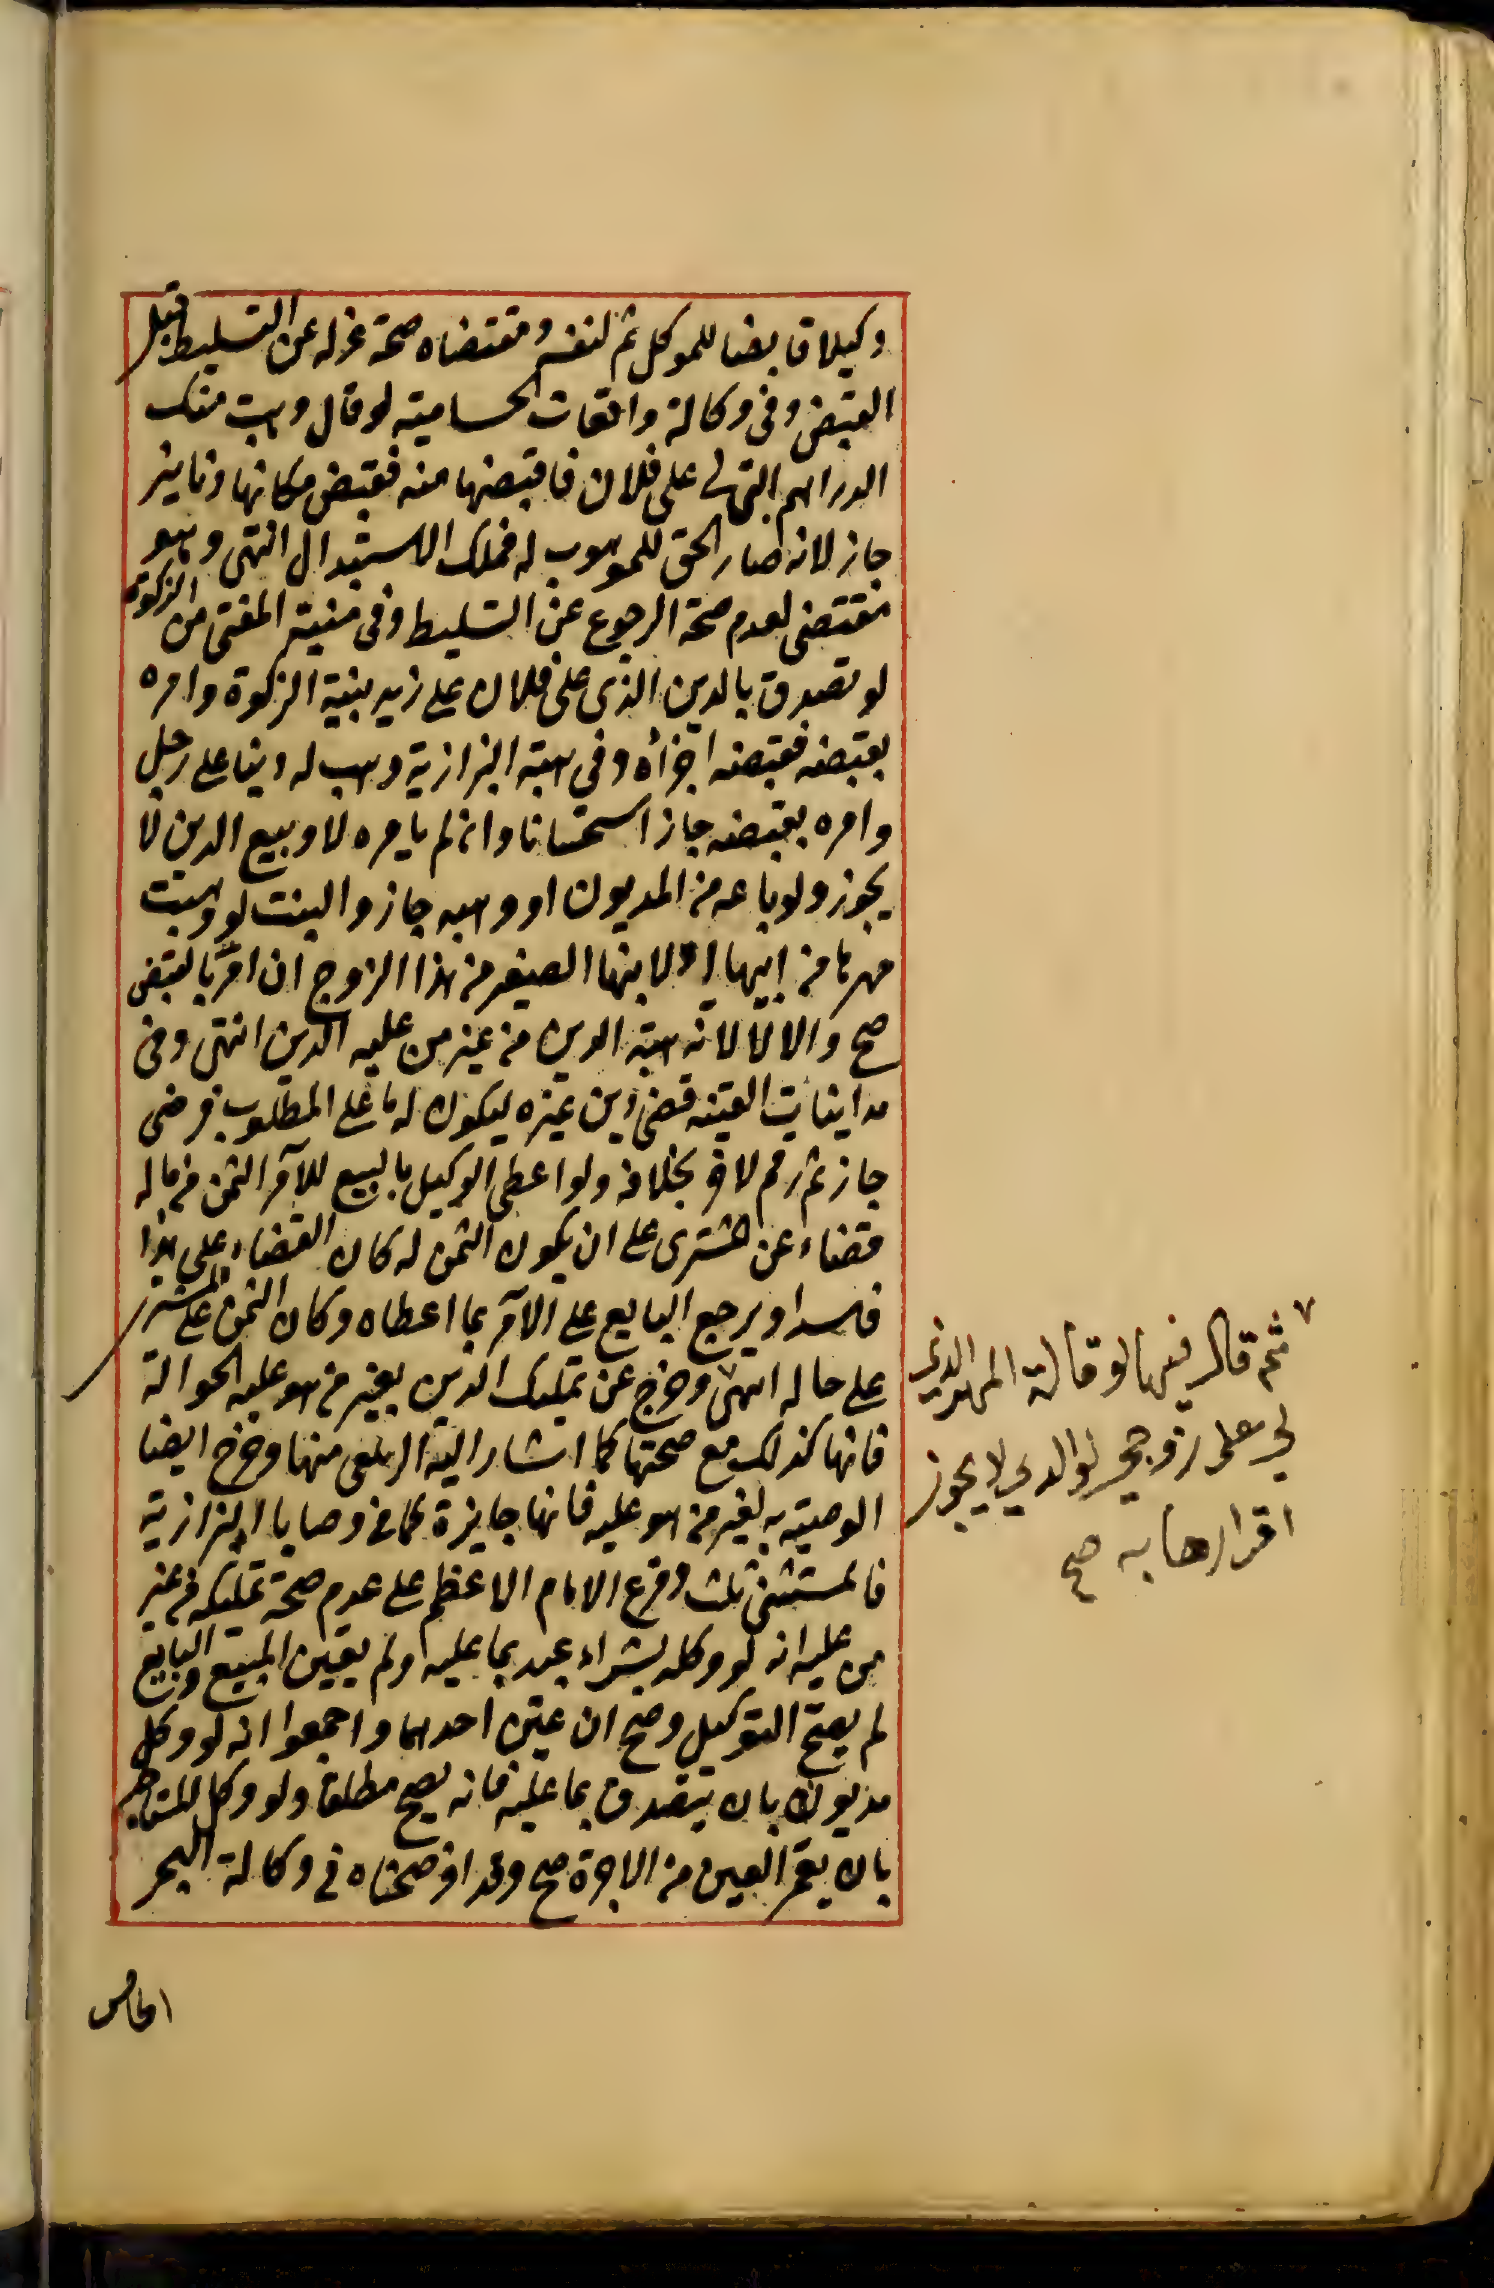 وكيلا قابضا للموكل ثم لنفسه ومقتضاه صحة عزله عن التسليط قبل
القبض وفى وكالة واقعات الحسامية لو قال وهبت منك
الدراهم التى لى على فلان فاقبضها منه فقبض مكانها دنانير
جاز لانه صار الحق للموهوب له فملك الاستبدال انتهى وهو
مقتضى لعدم صحة الرجوع عن التسليط وفى منية المفتى من الزكوة
لو تصدق بالدين الذى على فلان على زيد بنية الزكوة وامره
بقبضه فقبضه اجزأه وفى هبة البزازية وهب له دينا على رجل
وامره بقبضه جاز استحسانا وان لم يامره لا وبيع الدين لا
يجوز ولو باعه من المديون او وهبه جاز والبنت لو وهبت
مهرها من ابيها او لابنها الصغير من هذا الزوج ان امر بالقبض
صح والا لا لانه هبة الدين من غير من عليه الدين انتهى وفى
مداينات القنية قضى دين غيره ليكون له ما على المطلوب فرضى
جاز ثم رقم لاخر بخلافه ولو اعطى الوكيل بالبيع للآمر الثمن من ماله
قضاء عن المشترى على ان يكون الثمن له كان القضاء على هذا
فاسدا ويرجع البايع على الآمر بما اعطاه وكان الثمن على المشترى
على حاله انتهى ٧ وخرج عن تمليك الدين لغير من هو عليه الحوالة
فانها كذلك مع صحتها كما اشار اليه الزيلعى منها وخرج ايضا
الوصية به لغير من هو عليه فانها جايزة كما فى وصايا البزازية
فالمستثنى ثلث وفرع الامام الاعظم على عدم صحة تمليكه من غير
من عليه انه لو وكله بشراء عبد بما عليه ولم يعين المبيع والبايع
لم يصح التوكيل وصح ان عين احدهما واجمعوا انه لو وكل
مديونه بان يتصدق بما عليه فانه يصح مطلقا ولو وكل المستاجر
بان يعمر العين من الاجرة صح وقد اوضحناه فى وكالة البحر
٧ ثم قال فيها لو قالت المهر الذي
لي على زوجي لوالدي لا يجوز
اقرارها به صح